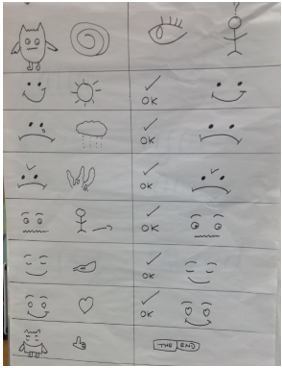 ?
OK
OK
OK
OK
OK
OK
THE END